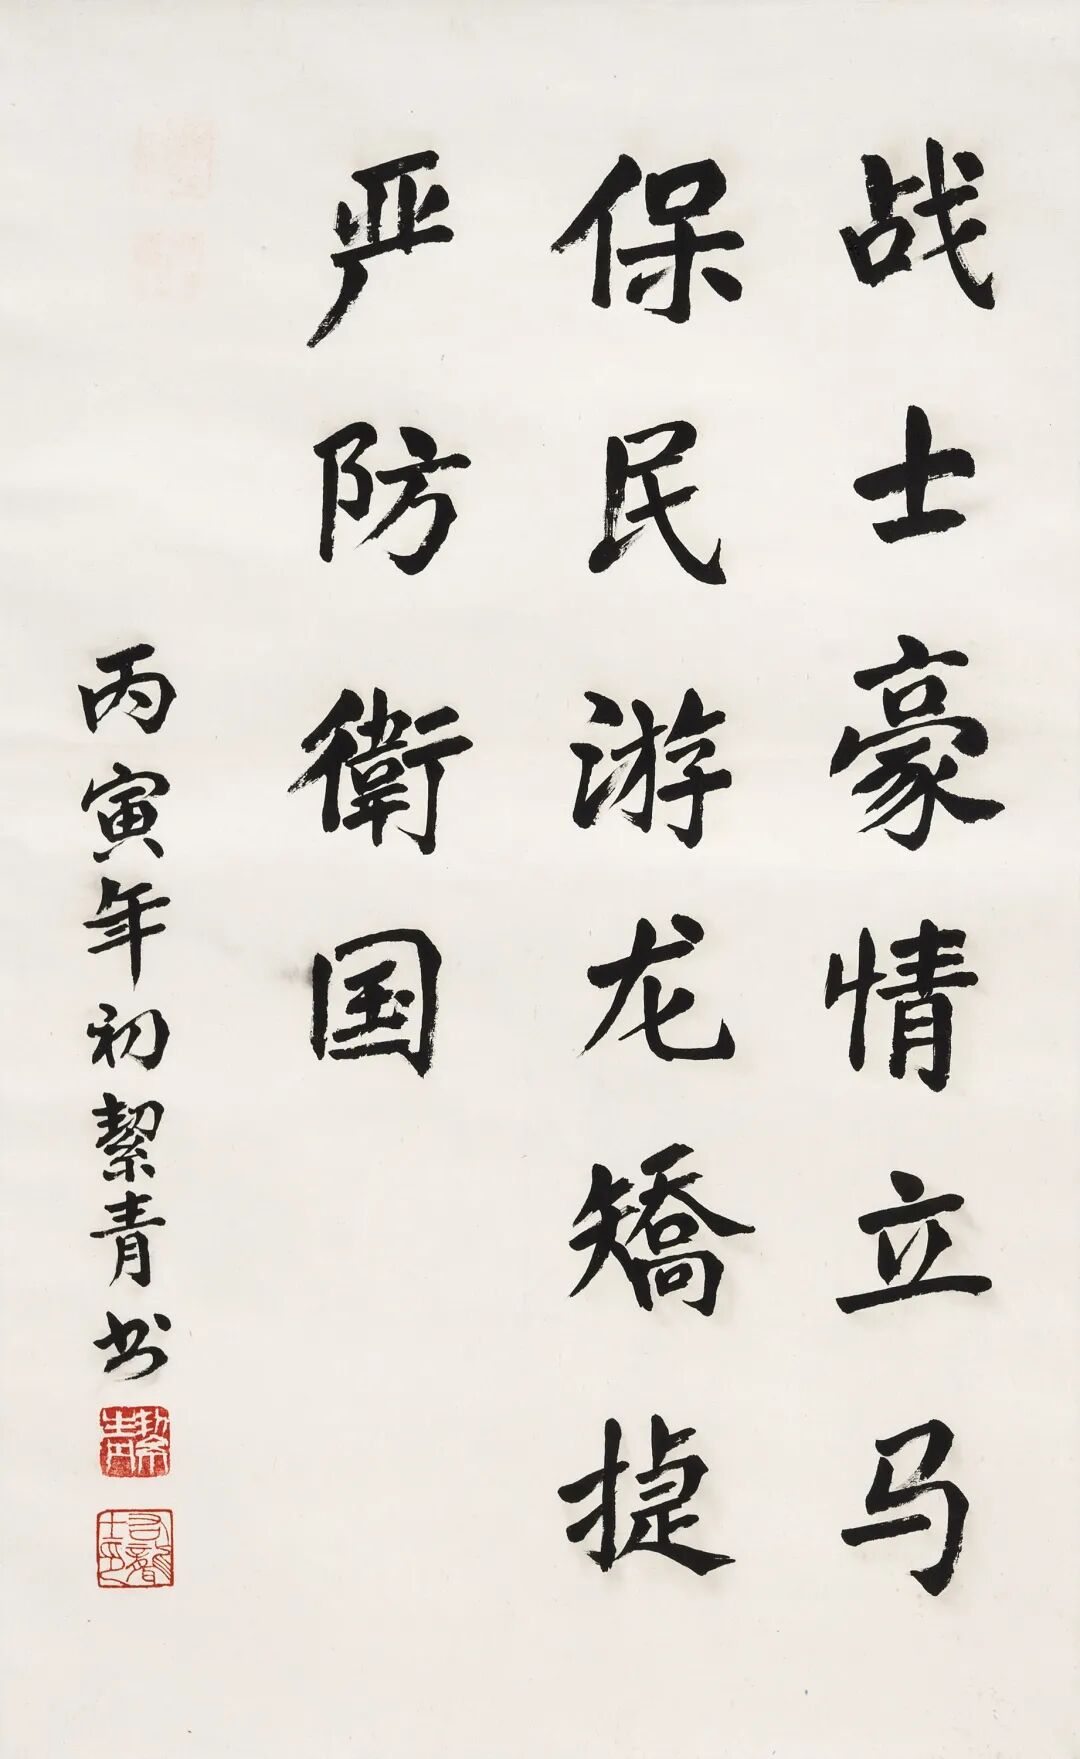 战士豪情立马
保民游龙矫捷
严防衛国
丙寅年初絜青书
絜青